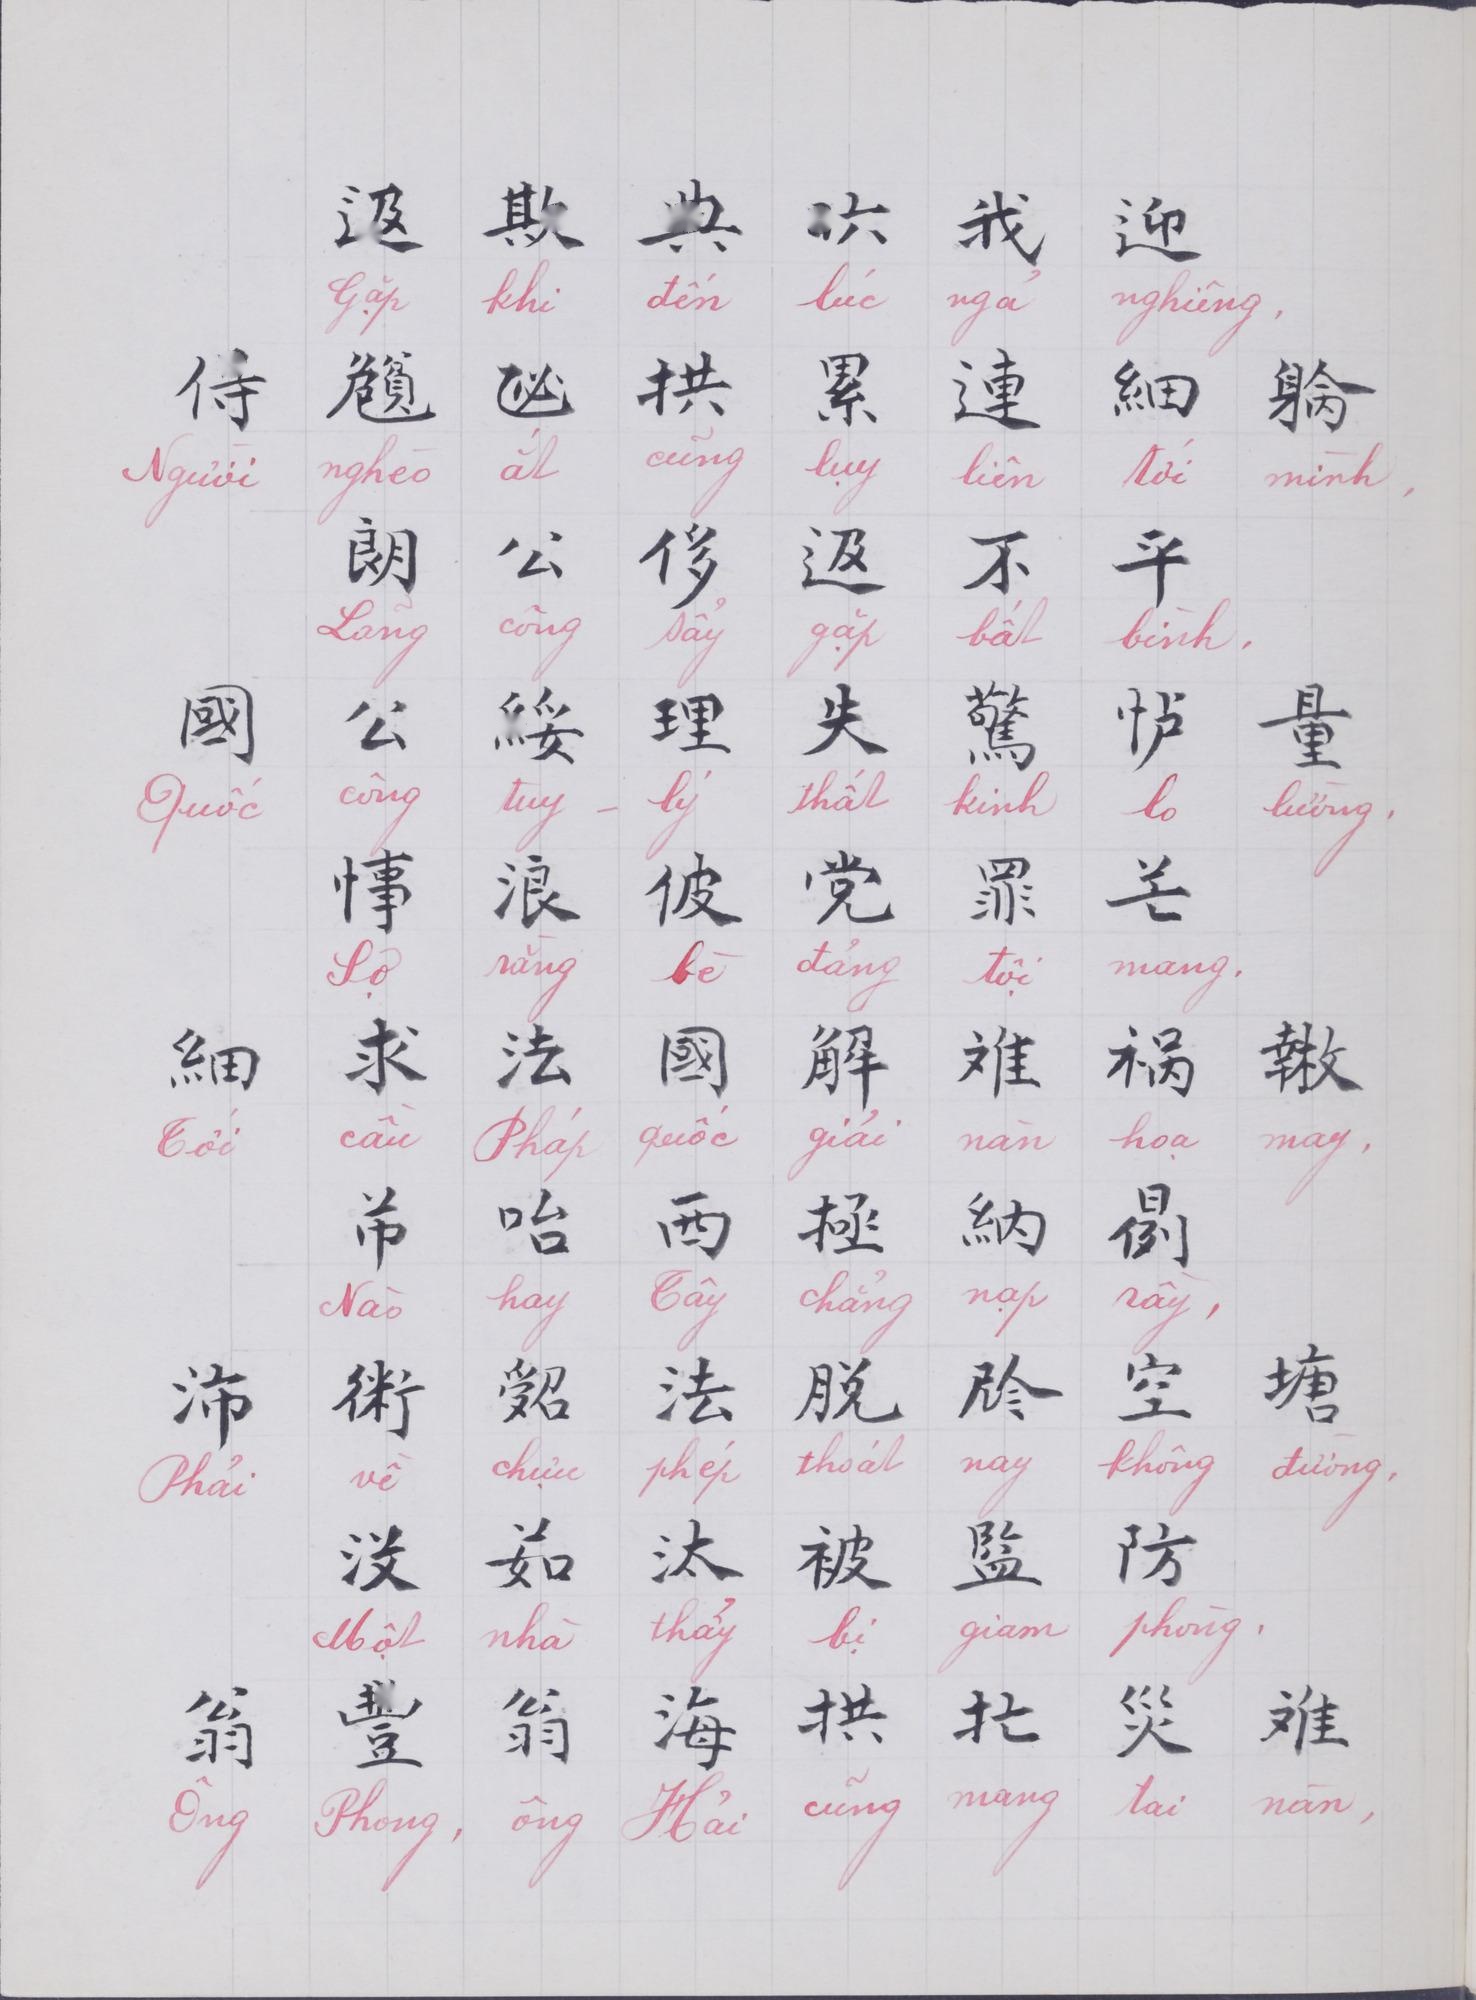 欺典𣅶我迎
Gặp khi đến lúc ngả nghiêng,
拱累連細躺
Người nghèo ắt cũng lụy liên tới mình,
朗公侈不平
Lãng công sẩy gặp bất bình.
國公綏理失驚怐量
Quốc công tuy - lý thất kinh lo lường.
浪彼党罪芒
Sợ rằng bè đảng tội mang.
細求法國解难禍
Tới cầu Pháp quốc giải nàn họa may,
咍西極納
Nào hay Tây chẳng nạp rầy,
沛術法脱空塘
Phải về chịu phép thoát nay không đường,
茹汰被監防
Một nhà thảy bị giam phòng.
翁豐翁海拱𫼳災难
Ông Phong, ông Hải cũng mang tai nàn,